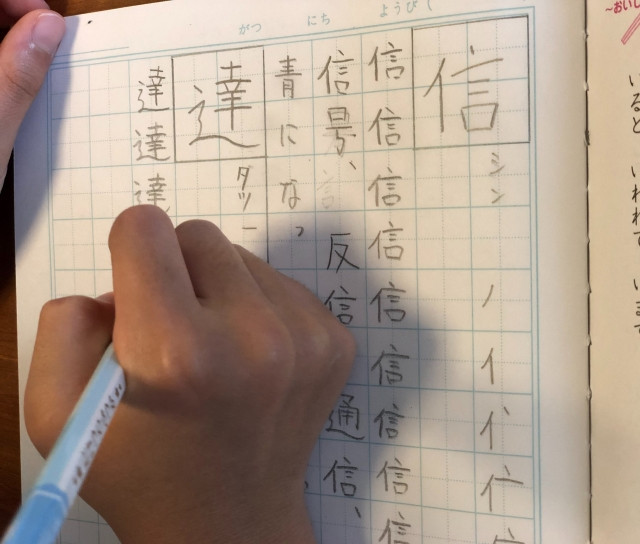 がつ にち ようび
〜おいし
いると いわれて います
信
シン
信信信信信信信信信
信号、反信 通信、
青になっ
達
タツ
達達達